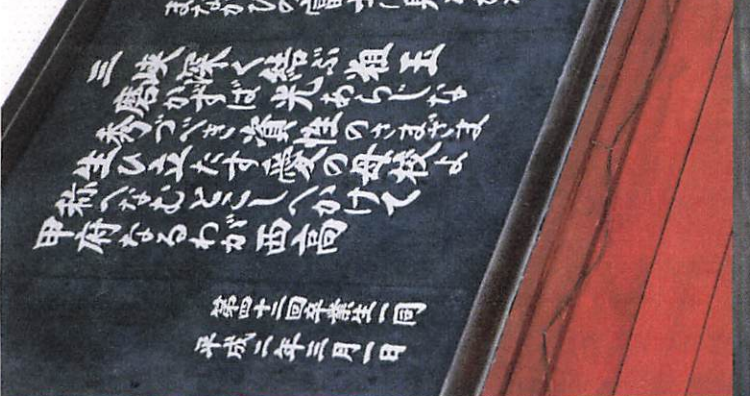 三峡深く結ぶ粗玉
磨かずば光あらじな
秀づべき資性のさまざま
生ひ立たす愛の母校よ
称へなむとこしへかけて
甲府なるわが西高
第四十二回卒業生一同
平成二年三月一日